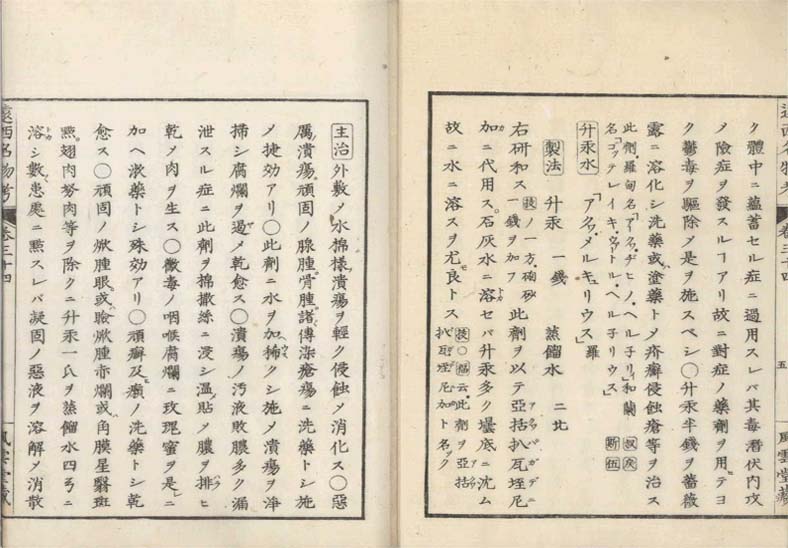 ク體中ニ蘊蓄セル症ニ過用スレバ其毒習伏内攻
ノ險症ヲ發スルヿアリ故ニ對症ノ藥劑ヲ用テヨ
ク鬱毒ヲ驅除メ是ヲ施スベシ〇升汞半錢ヲ薔薇
露ニ溶化シ洗藥或塗藥トメ疥癬侵蝕瘡等ヲ治ス
此劑羅甸名「アクヮ、ヂヒノ、ヘル子リイ」和蘭
名「ゴッデレイキ、ウヮトル、ヘル子リウス」
升汞水 「アクヮ、メルキュリウス」羅
製法 升汞 一錢 蒸餾水 二比
右研和ス 一方硇砂一錢ヲ加フ 此劑ヲ以テ亞括扒瓦垤尼
加ニ代用ス。石灰水ニ溶セバ升汞多ク壜底ニ沈ム
故ニ水ニ溶スヲ尤良トス 此劑ヲ亞括扒瓦垤尼加ト名ク
主治 外敷メ水綿樣潰瘍ヲ輕ク侵蝕メ消化ス〇惡
厲潰瘍頑固ノ腺腫骨腫諸傳染瘡瘍ニ洗藥トシ施
メ捷効アリ〇此劑ニ水ヲ加稀クシ施メ潰瘍ヲ淨
掃シ腐爛ヲ遏メ乾愈ス〇潰瘍ノ汚液敗膿多ク漏
泄スル症ニ此劑ヲ綿撒絲ニ浸シ溫貼メ膿ヲ排ヒ
乾メ肉ヲ生ス〇黴毒ノ咽喉腐爛ニ玫瑰蜜ヲ是ニ
加ヘ漱藥トシ殊効アリ〇頑癬及癩ノ洗藥トシ乾
愈ス〇頑固ノ焮腫眼或瞼焮腫赤爛或角膜星翳斑
㸃翅肉努肉等ヲ除クニ升汞一氏ヲ蒸餾水四弓ニ
溶シ數患處ニ㸃スレバ凝固ノ惡液ヲ溶解メ消散
遠西名物考
卷三十四
五
風雲堂藏